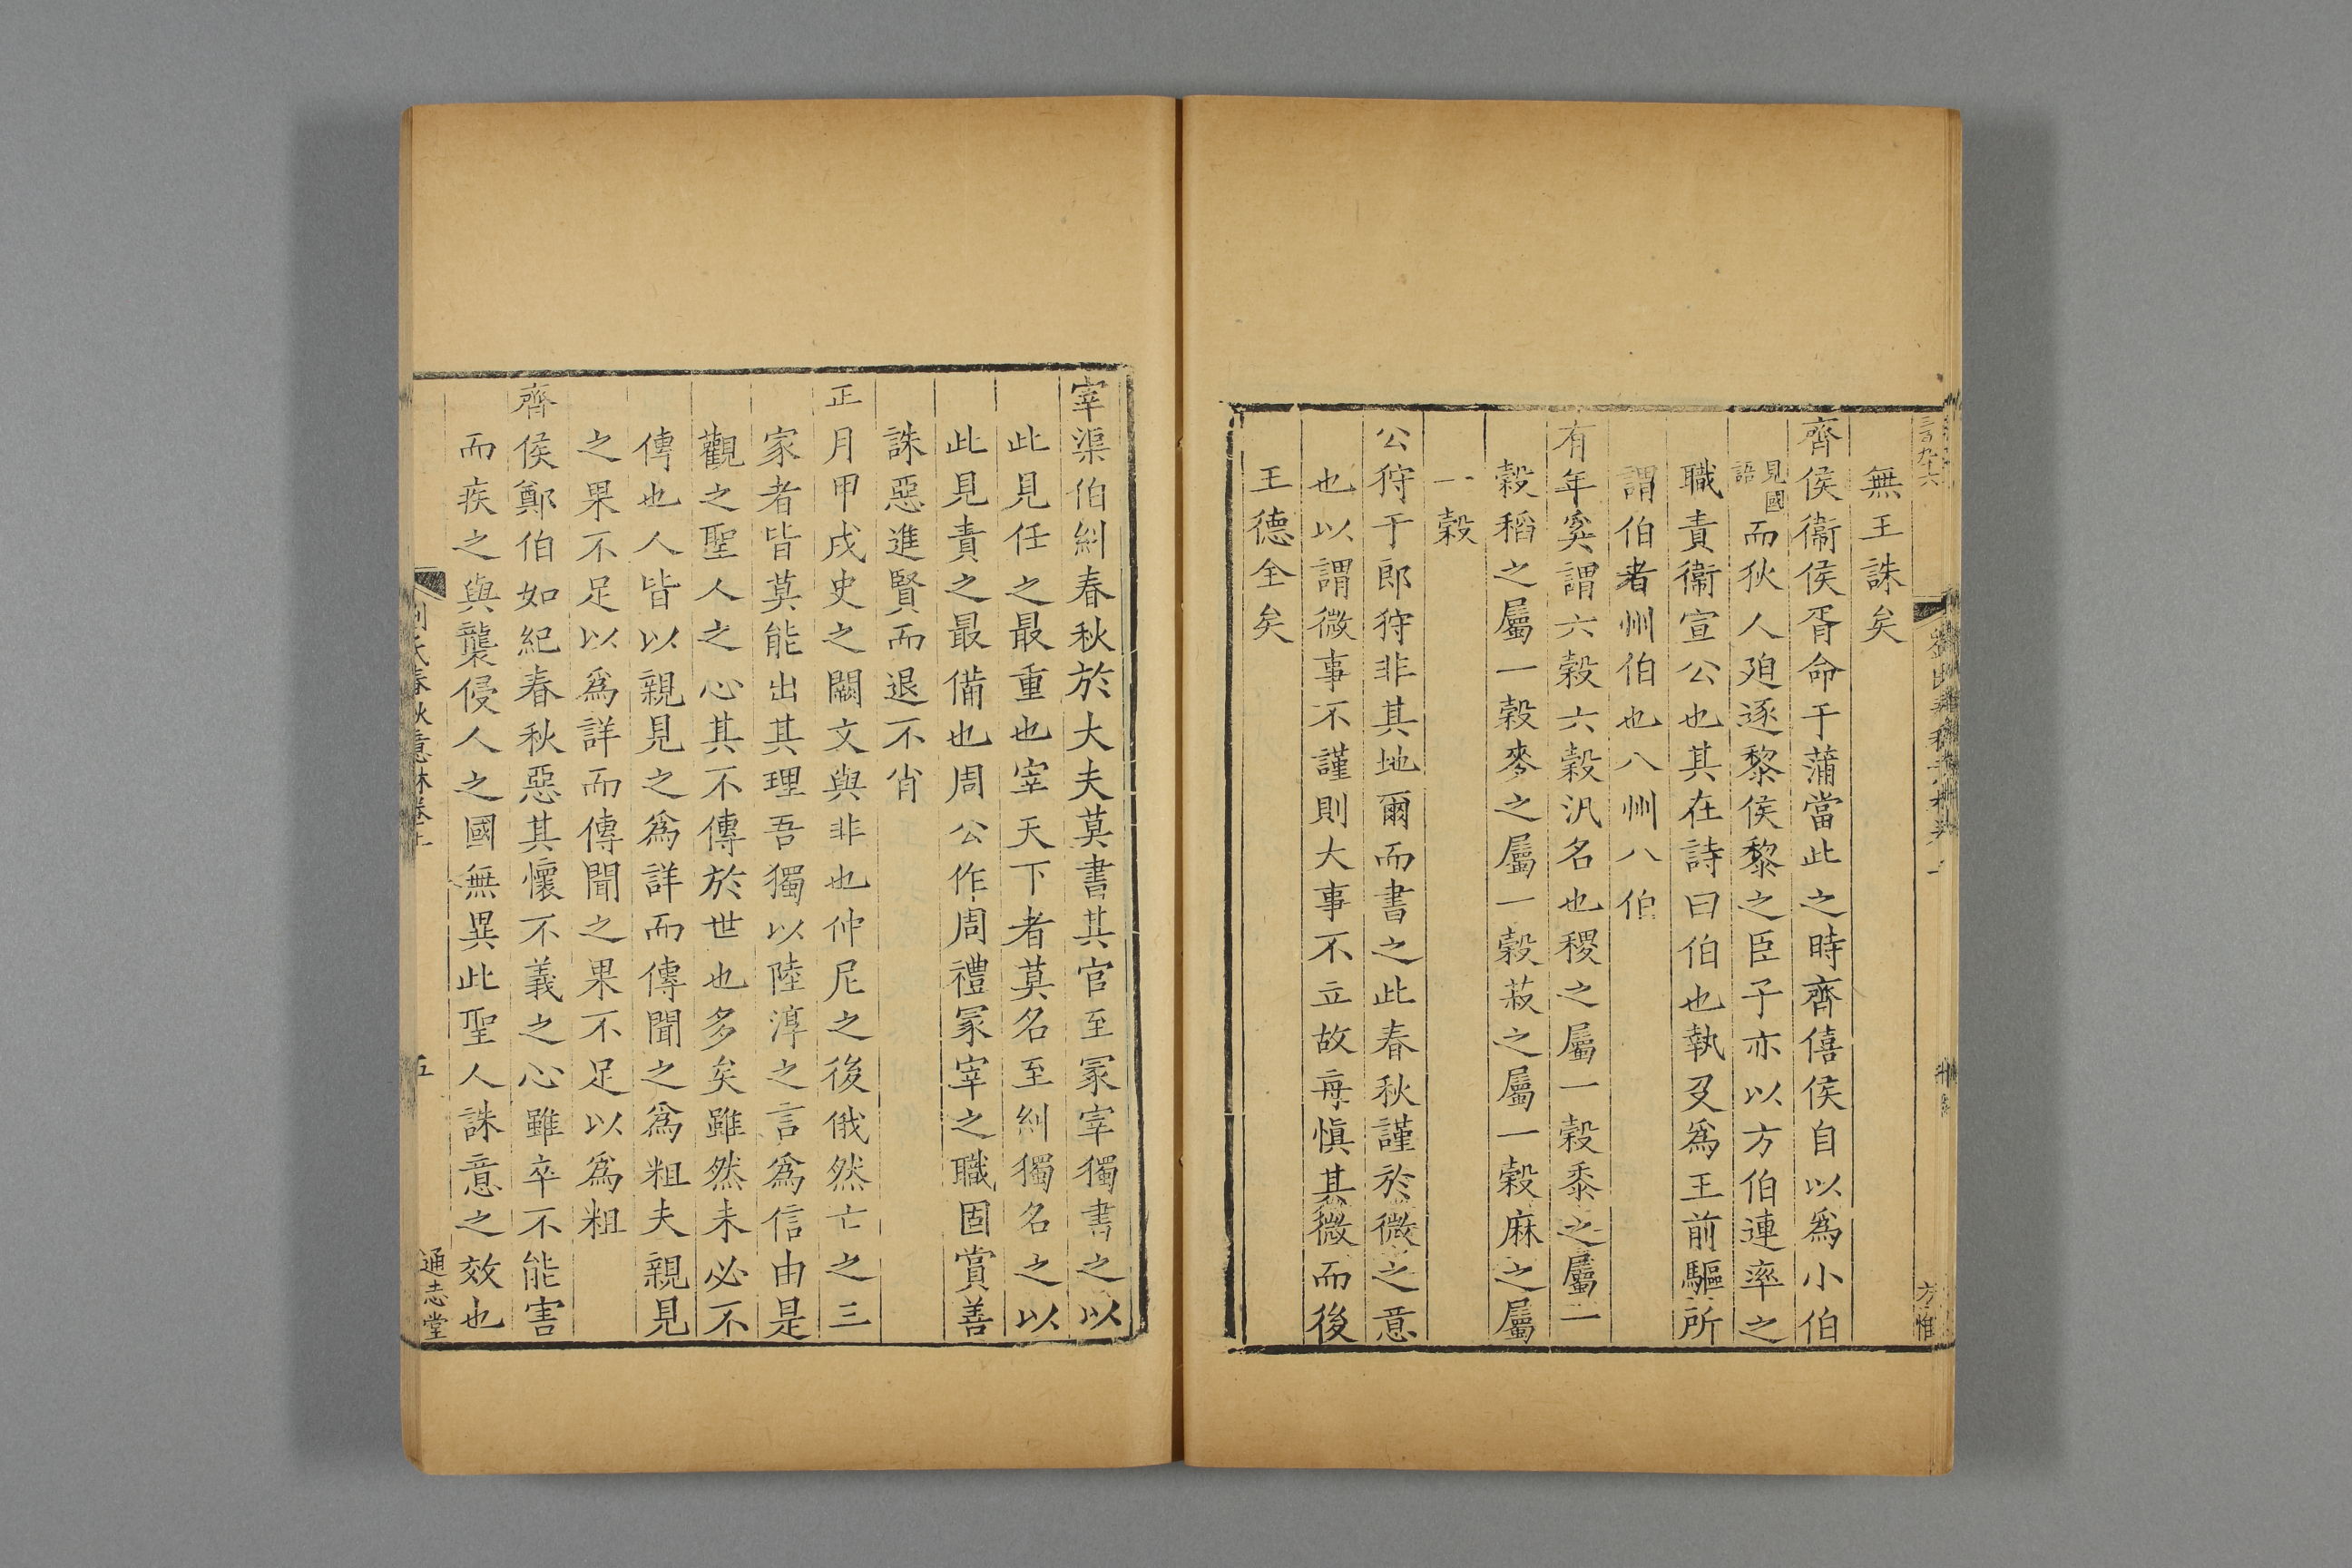 三百九十六
方惟
無王誅矣
齊侯衞侯胥命于蒲當此之時齊僖侯自以爲小伯
見國
語
而狄人廹逐黎侯黎之臣子亦以方伯連率之
職責衞宣公也其在詩曰伯也執殳爲王前驅所
謂伯者州伯也八州八伯
有年奚謂六穀六穀汎名也稷之屬一穀黍之屬一
穀稻之屬一穀麥之屬一穀菽之屬一穀麻之屬
一穀
公狩于郎狩非其地爾而書之此春秋謹於微之意
也以謂微事不謹則大事不立故毋愼其微而後
王德全矣
宰渠伯糾春秋於大夫莫書其官至冡宰獨書之以
此見任之最重也宰天下者莫名至糾獨名之以
此見責之最備也周公作周禮冡宰之職固賞善
誅惡進賢而退不肖
正月甲戌史之闕文與非也仲尼之後俄然亡之三
家者皆莫能出其理吾獨以陸淳之言爲信由是
觀之聖人之心其不傳於世也多矣雖然未必不
傳也人皆以親見之爲詳而傳聞之爲粗夫親見
之果不足以爲詳而傳聞之果不足以爲粗
齊侯鄭伯如紀春秋惡其懷不義之心雖卒不能害
而疾之與襲侵人之國無異此聖人誅意之效也
劉氏春秋意林卷上
五
通志堂